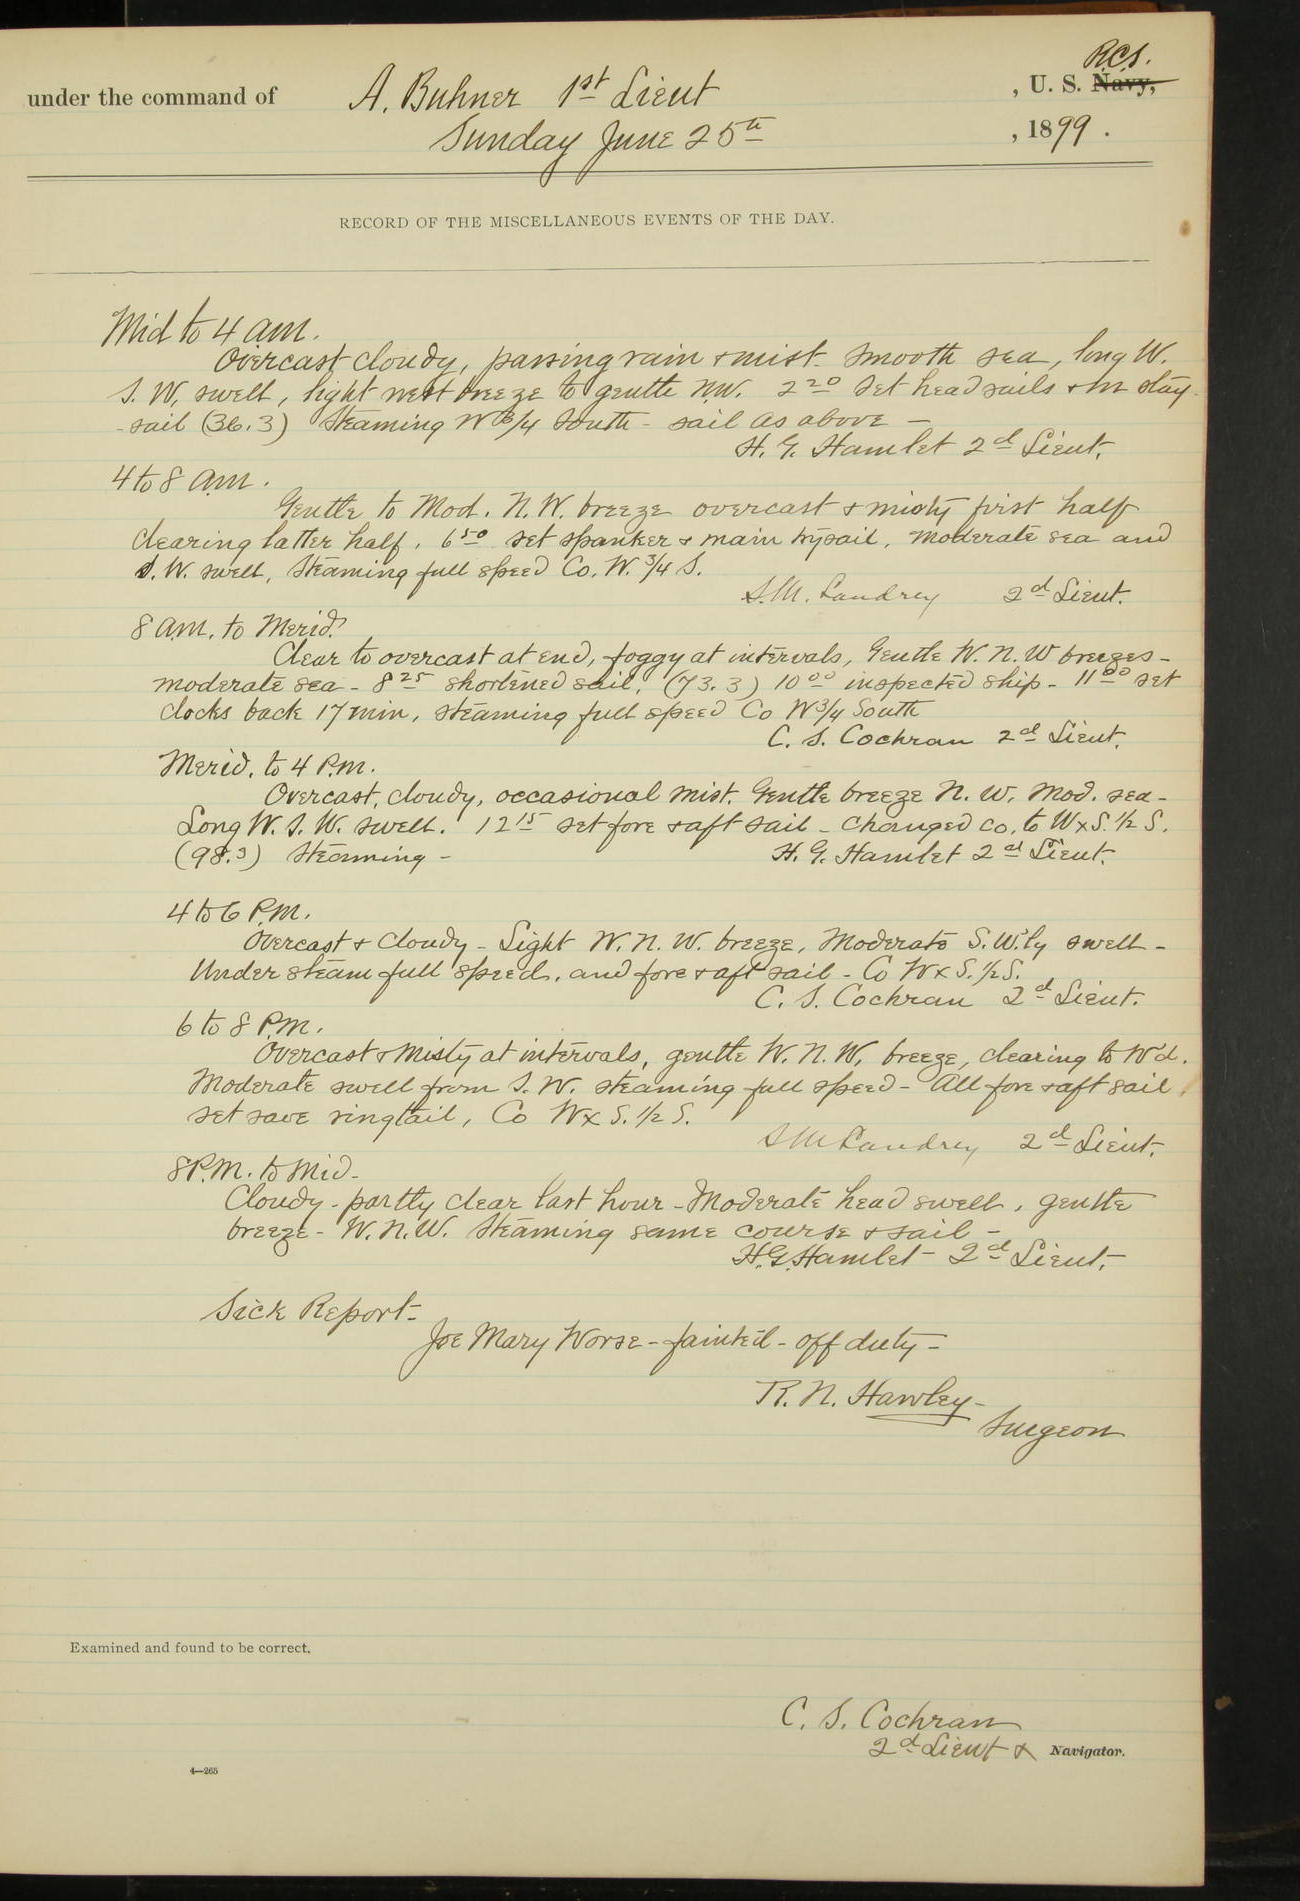 R.C.S.
under the command of A. Buhner 1st Lieut , U. S. Navy,
Sunday June 25th , 1899 .
RECORD OF THE MISCELLANEOUS EVENTS OF THE DAY.
Mid to 4 am.
Overcast cloudy, passing rain & mist. Smooth sea, long W.
S. W. swell, light west breeze to gentle N.W. 2 20 set head sails & m stay
-sail (36.3) Steaming W 3/4 South - sail as above -
H. G. Hamlet 2d Lieut.
4 to 8 a.m.
Gentle to Mod. N.W. breeze overcast & misty first half
clearing latter half. 6 50 set spanker & main trysail, moderate sea and
S. W. swell, Steaming full speed Co. W. 3/4 S.
S.M. Landrey 2d Lieut.
8 a.m. to Merid.
Clear to overcast at end, foggy at intervals, Gentle W. N. W breezes -
moderate sea - 8 25 shortened sail, (73.3) 10 00 inspected ship - 11 00 set
clocks back 17 min, steaming full speed Co W 3/4 South
C. S. Cochran 2d Lieut.
Merid. to 4 P.m.
Overcast, cloudy, occasional mist. Gentle breeze N. W. Mod. sea -
Long W. S. W. swell. 12 15 set fore & aft sail - changed co. to W x S. 1/2 S.
(98.3) Steaming - H. G. Hamlet 2d Lieut.
4 to 6 P.M.
Overcast & cloudy - Light W. N. W. breeze, Moderate S. W'ly swell -
Under steam full speed, and fore & aft sail - Co W x S. 1/2 S.
C. S. Cochran 2d Lieut.
6 to 8 P.M.
Overcast & Misty at intervals, gentle W. N. W. breeze, clearing to W'd.
Moderate swell from S. W. steaming full speed - All fore & aft sail
set save ringtail, Co W x S. 1/2 S.
S M Landrey 2d Lieut.
8 P.M. to Mid -
Cloudy - partly clear last hour - Moderate head swell, gentle
breeze - W. N. W. Steaming same course & sail -
H. G. Hamlet - 2d Lieut. -
Sick Report -
Joe Mary Worse - fainted - off duty -
R. N. Hawley -
Surgeon
Examined and found to be correct.
C. S. Cochran
2d Lieut & Navigator.
4—265